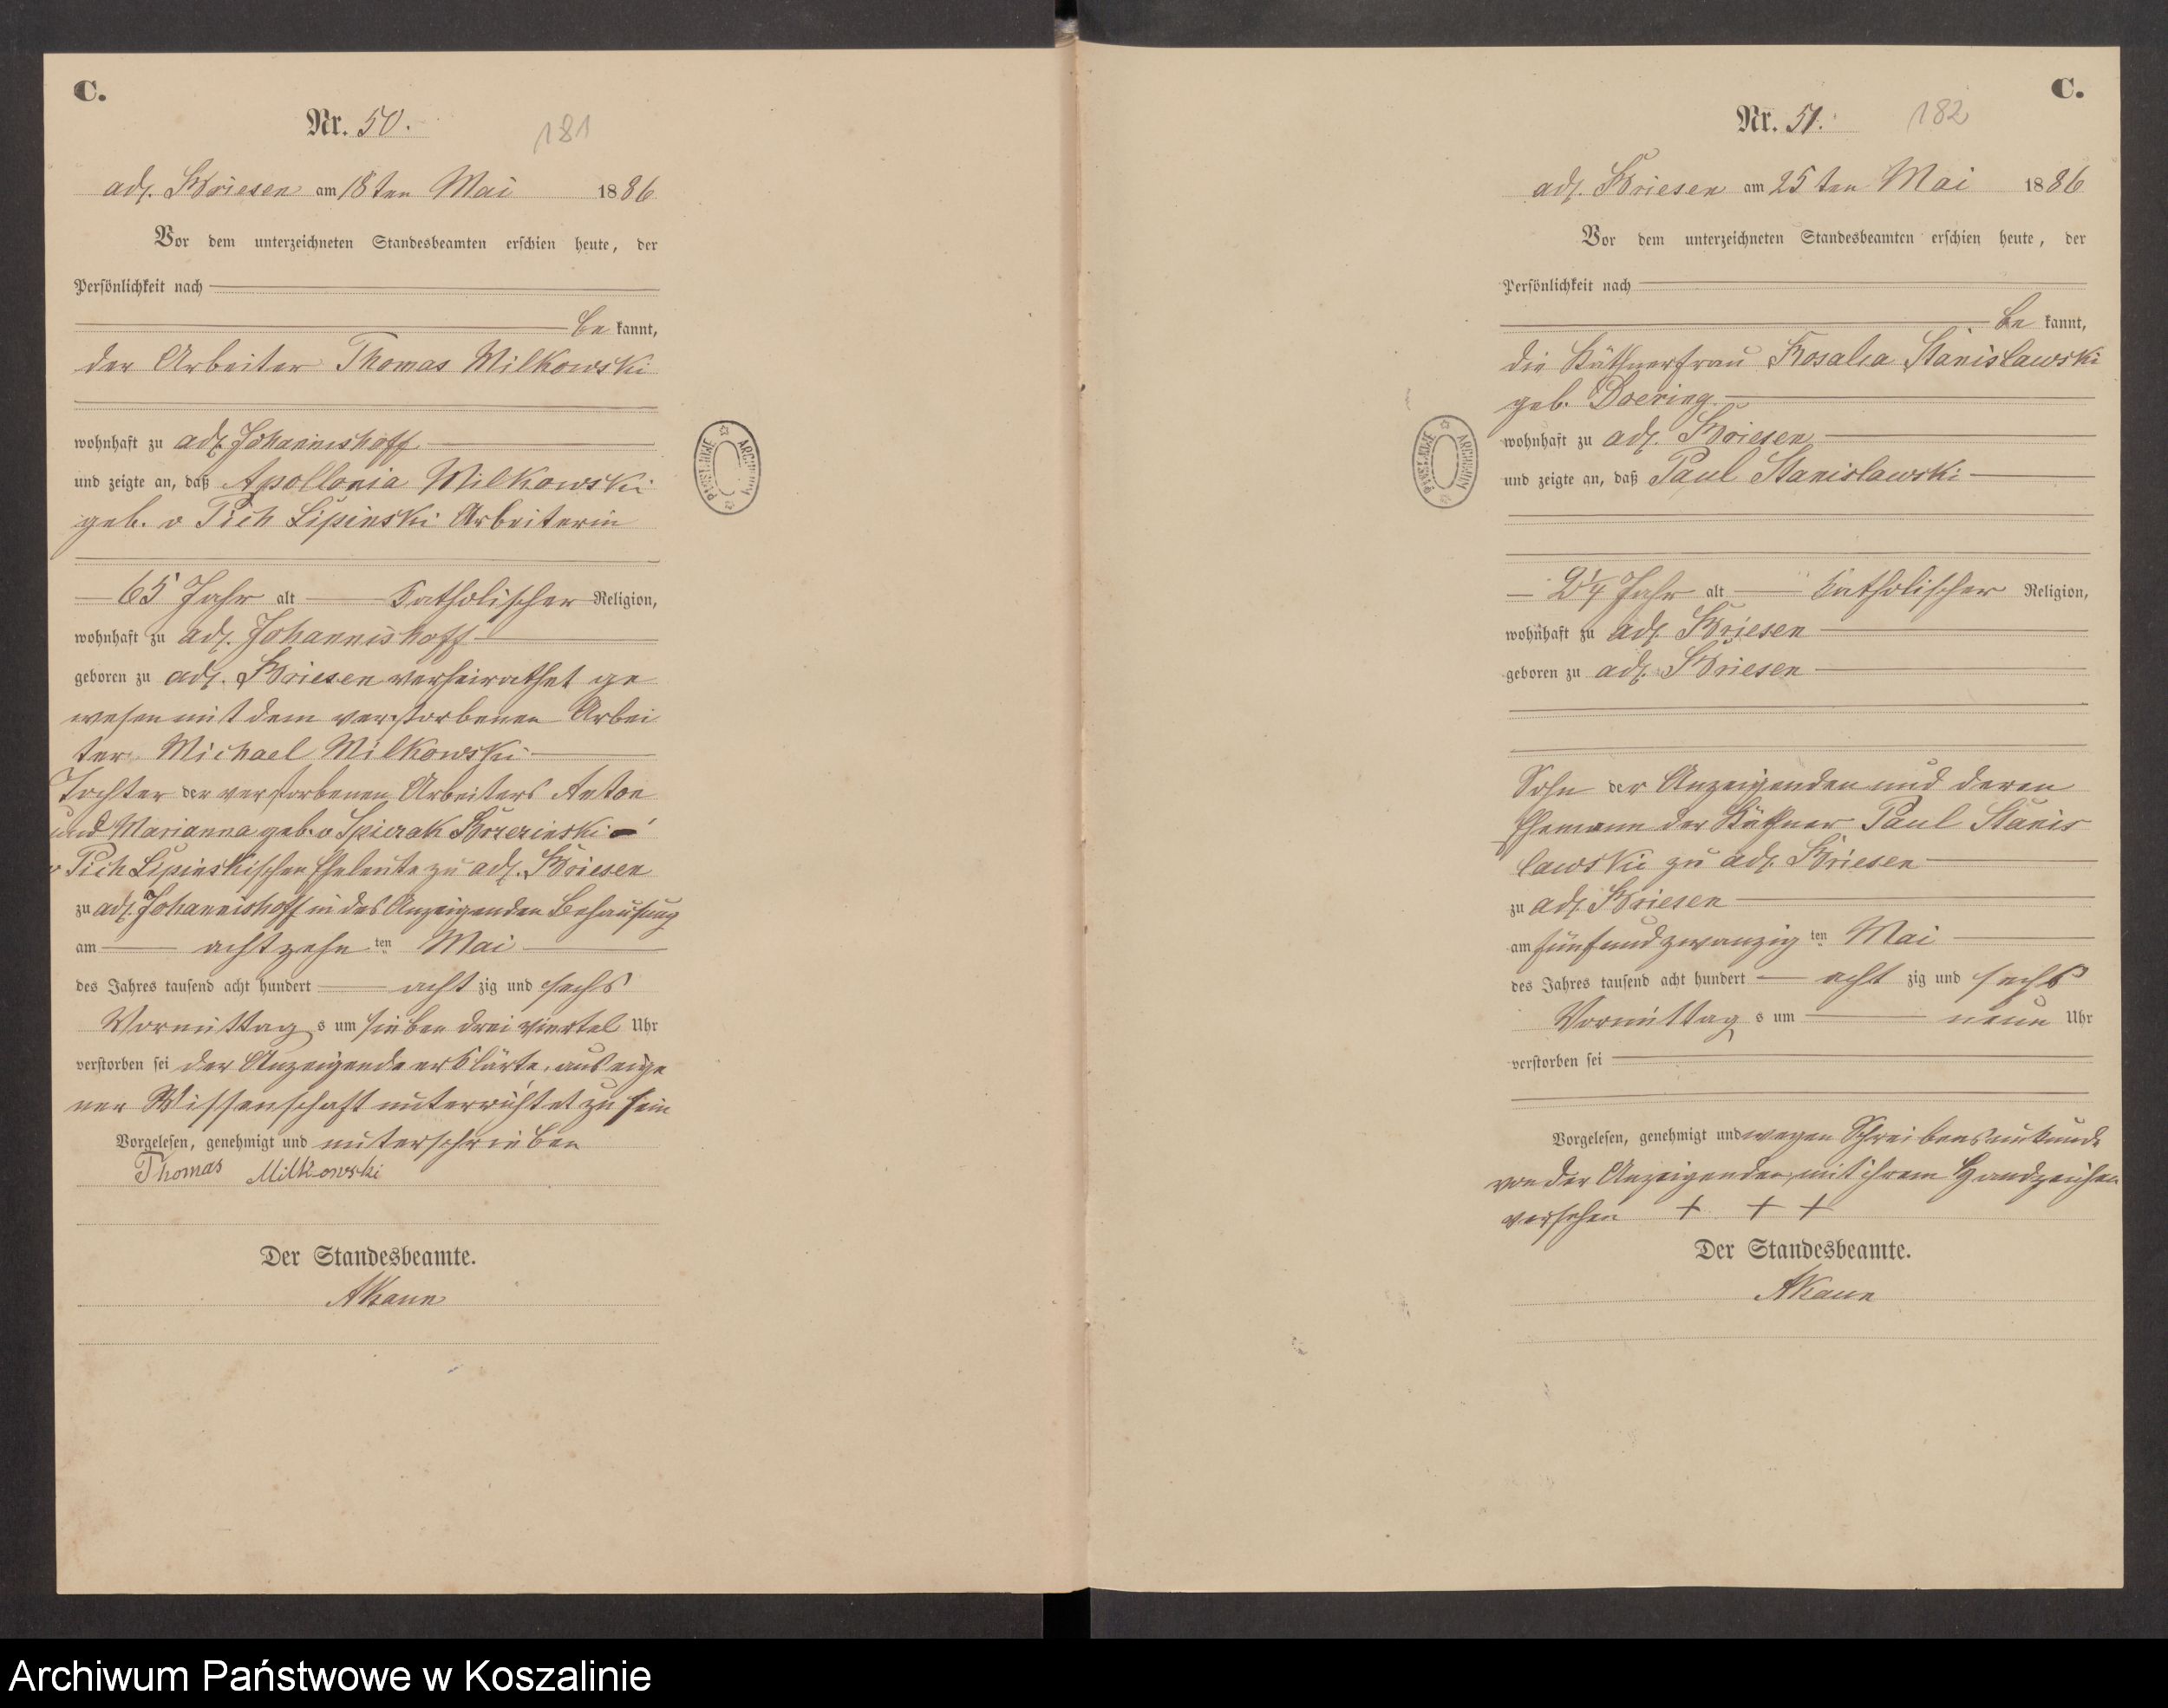 C.
Nr. 50.
181
adl. Briesen am 18ten Mai 1886
Vor dem unterzeichneten Standesbeamten erschien heute, der
Persönlichkeit nach
be kannt,
der Arbeiter Thomas Milkowski
wohnhaft zu adl. Johannishoff
und zeigte an, daß Apollonia Milkowski
geb. v Pich Lipinski Arbeiterin
65 Jahr alt Katholischer Religion,
wohnhaft zu adl. Johannishoff
geboren zu adl. Briesen verheirathet ge
wesen mit dem verstorbenen Arbei
ter Michael Milkowski
Tochter der verstorbenen Arbeiters Anton
und Marianna geb. v Spiczak Brzezinski
v Pich Lipinskischen Eheleute zu adl. Briesen
zu adl. Johannishoff in des Anzeigenden Behausung
am achtzehn ten Mai
des Jahres tausend acht hundert acht zig und sechs
Vormittag s um sieben dreiviertel Uhr
verstorben sei der Anzeigende erklärte, aus eige
ner Wissenschaft unterrichtet zu sein
Vorgelesen, genehmigt und unterschrieben
Thomas Milkowski
Der Standesbeamte.
C.
Nr. 51.
182
adl. Briesen am 25ten Mai 1886
Vor dem unterzeichneten Standesbeamten erschien heute, der
Persönlichkeit nach
be kannt,
die Käthnerfrau Rosalia Stanislawski
geb. Doering
wohnhaft zu adl. Briesen
und zeigte an, daß Paul Stanislawski
Jahr alt Katholischer Religion,
wohnhaft zu adl. Briesen
geboren zu adl. Briesen
Sohn der Anzeigenden und deren
Ehemann der Käthner Paul Stanis
lawski zu adl. Briesen
zu adl. Briesen
am fünfundzwanzig ten Mai
des Jahres tausend acht hundert acht zig und sechs
Vormittag s um neun Uhr
verstorben sei
Vorgelesen, genehmigt und wegen Schreibensunkunde
von der Anzeigenden mit ihrem Handzeichen
versehen + + +
Der Standesbeamte.
ARCHIWUM PAŃSTWOWE
ARCHIWUM PAŃSTWOWE
Archiwum Państwowe w Koszalinie